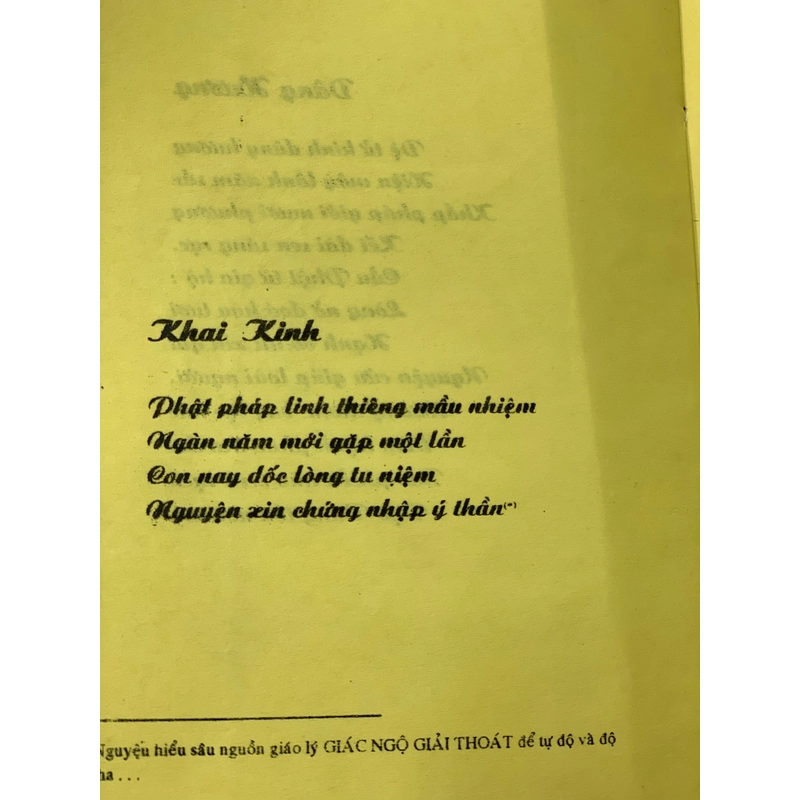 Khai Kinh
Phật pháp linh thiêng mầu nhiệm
Ngàn năm mới gặp một lần
Con nay dốc lòng tu niệm
Nguyện xin chứng nhập ý thần(*)
Nguyện hiểu sâu nguồn giáo lý GIÁC NGỘ GIẢI THOÁT để tự độ và độ
ha . . .